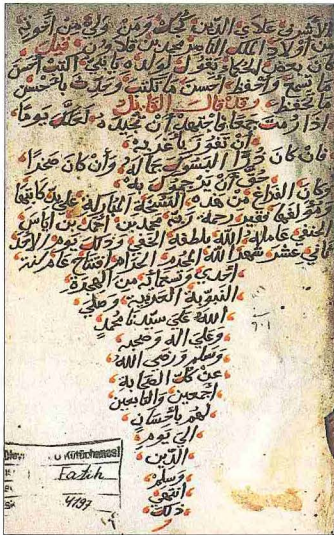 الأشرف علاي الدين كجك ومن ولي من أخوته
من أولاد الملك الناصر محمد بن قلاون قيل
كان بعض الحكماء يقول لولده يا بني اكتب أحسن
ما تسمع واحفظ أحسن ما تكتب وحدث بأحسن
ما تحفظ وقد قال القايل
اذا رمت جمعا فاجتهد أن تجيده لعلك يوما
أن تفوز
فان كان درا جماله وأن كان صخرا
حق أن يرجموك به
وكان الفراغ من هذه النسخة المباركة علي يد كاتبها
ومؤلفها فقير رحمة ربه محمد بن احمد بن اياس
الحنفي عامله الله بلطفه الخفي وذلك يوم الأحد
ثاني عشر شهر الله المحرم الحرام افتتاح عام سنة
احدي وتسعمائة من الهجرة
النبوية المحمدية وصلي
الله علي سيدنا محمد
وعلي اله وصحبه
وسلم ورضي الله
عن كل الصحابة
أجمعين والتابعين
لهم باحسان
الي يوم
الدين
وسلم
انتهي
ذلك
Kütüphanesi
Fatih
4197